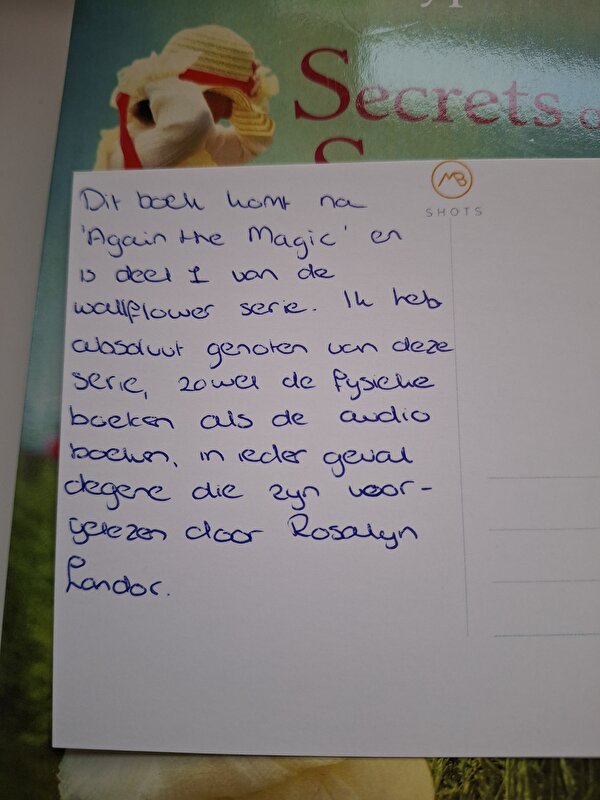 Secrets o
MB
SHOTS
Dit boek komt na
'Again the Magic' en
is deel 1 van de
wallflower serie. Ik heb
absoluut genoten van deze
serie, zowel de fysieke
boeken als de audio
boeken, in ieder geval
degene die zijn voor-
gelezen door Rosalyn
Landor.